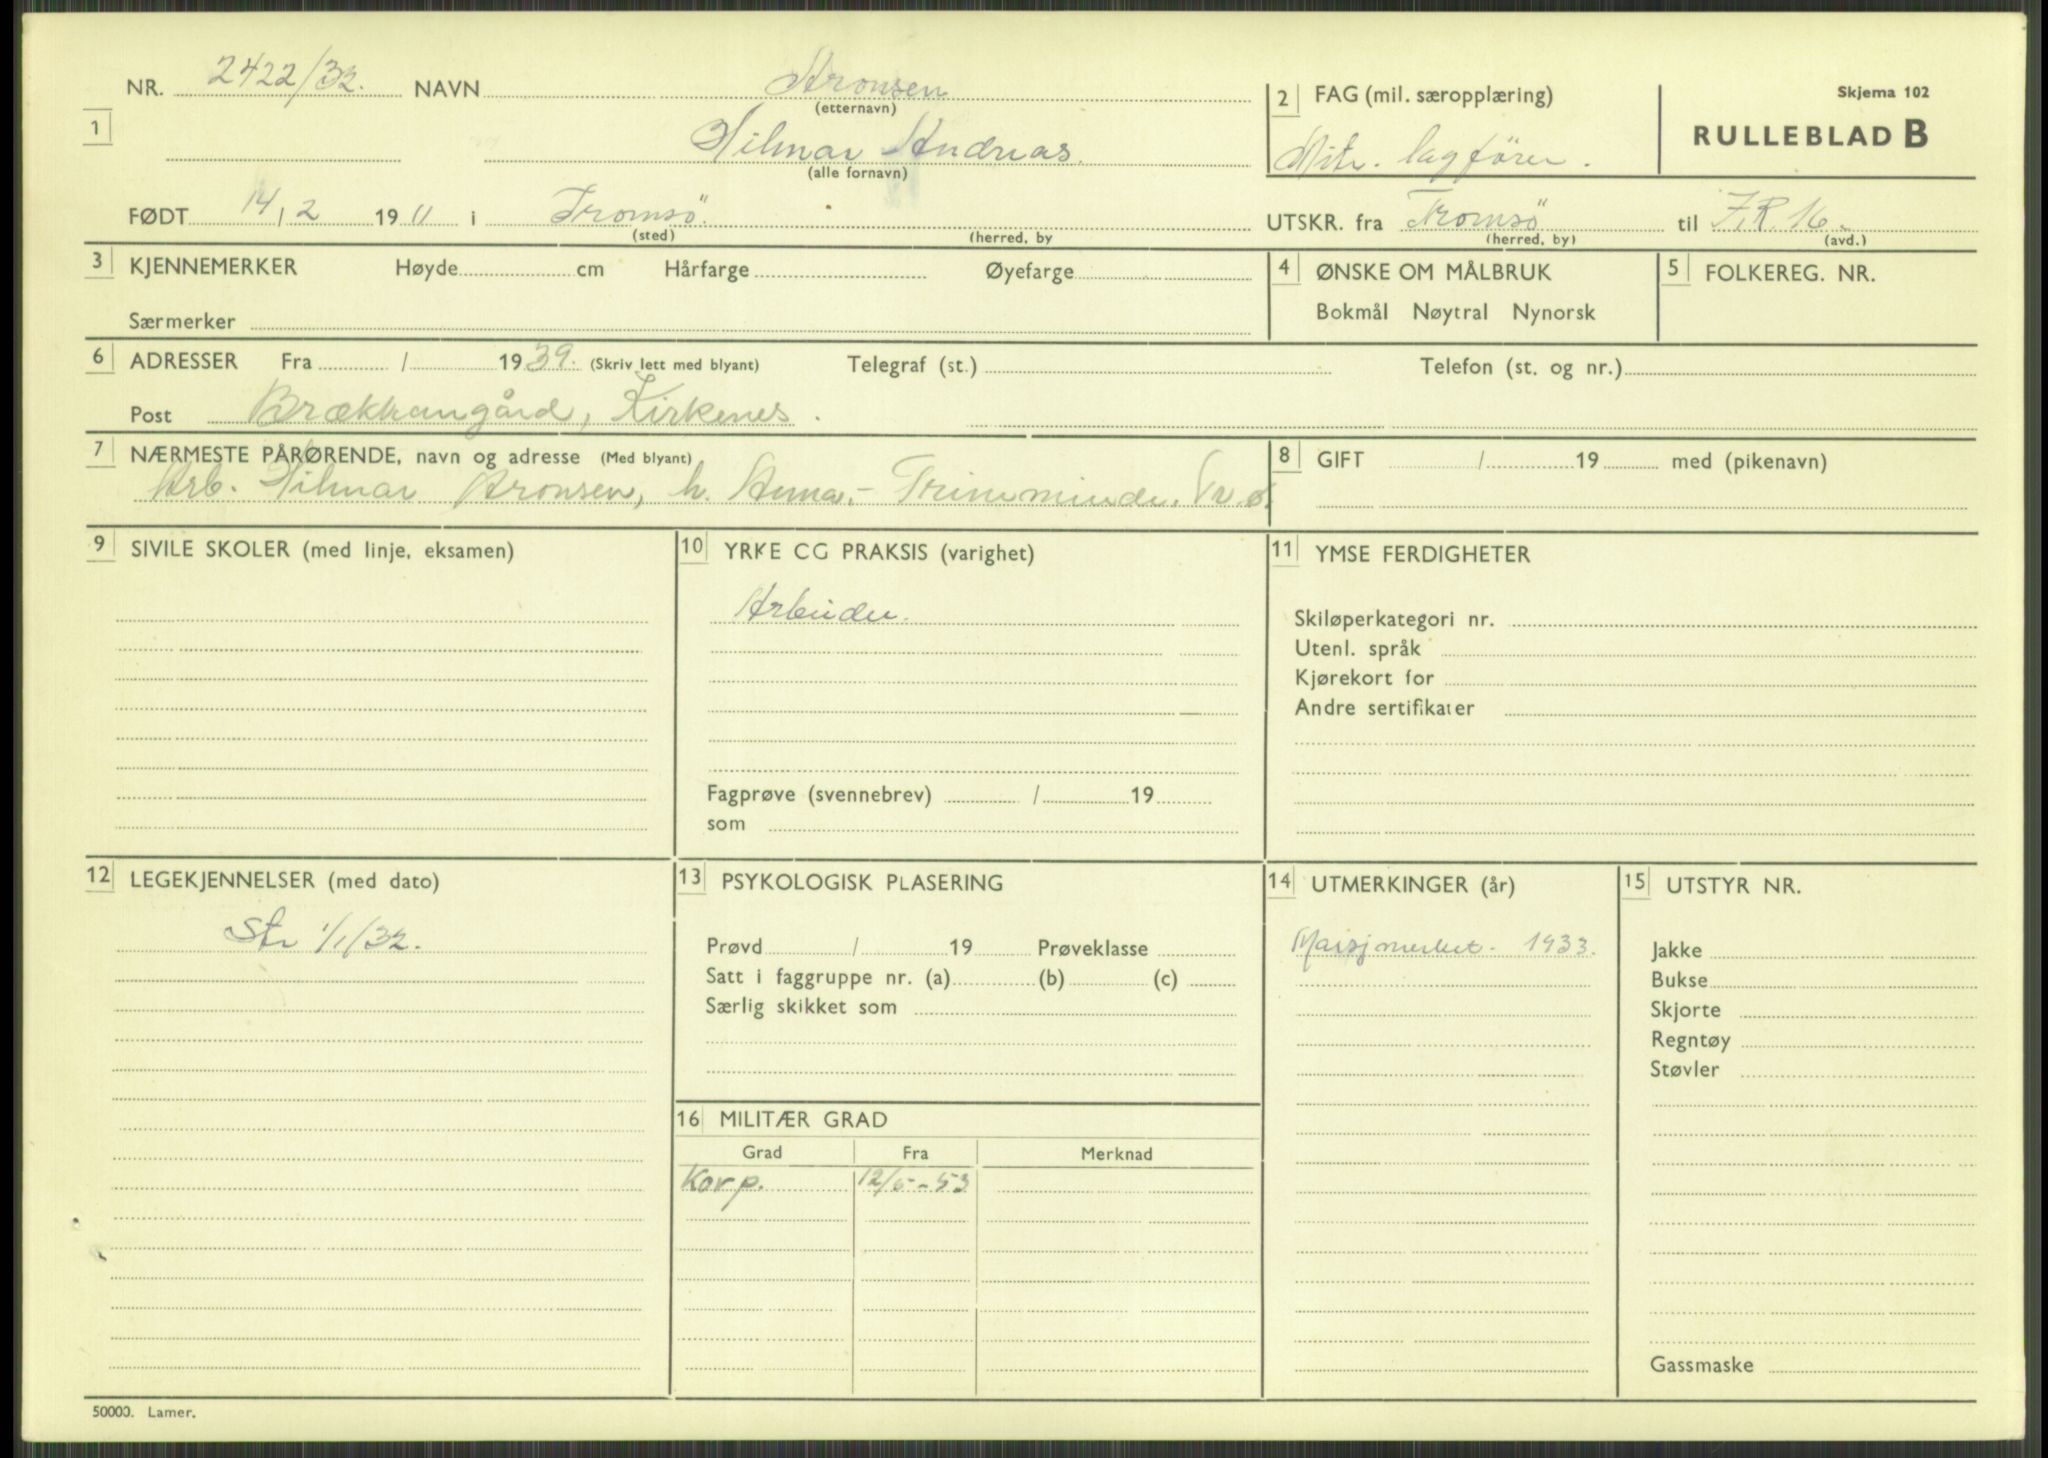 NR. 2422/32. NAVN Aronsen
(etternavn)
1
Hilmar Andreas.
(alle fornavn)
2 FAG (mil. særopplæring)
Mitr. lagfører.
Skjema 102
RULLEBLAD B
FØDT 14/2 1911 i Tromsö.
(sted) (herred, by
UTSKR. fra Tromsö til I.R. 16.
(herred, by) (avd.)
3 KJENNEMERKER Høyde cm Hårfarge Øyefarge
Særmerker
4 ØNSKE OM MÅLBRUK
Bokmål Nøytral Nynorsk
5 FOLKEREG. NR.
6 ADRESSER Fra / 1939. (Skriv lett med blyant) Telegraf (st.) Telefon (st. og nr.)
Post Brækkangård, Kirkenes.
7 NÆRMESTE PÅRØRENDE, navn og adresse (Med blyant)
Arb. Hilmar Aronsen, h. Anna,- Trimminde. Tr.ø.
8 GIFT / 19 med (pikenavn)
9 SIVILE SKOLER (med linje, eksamen)
10 YRKE CG PRAKSIS (varighet)
Arbeider.
Fagprøve (svennebrev) / 19
som
11 YMSE FERDIGHETER
Skiløperkategori nr.
Utenl. språk
Kjørekort for
Andre sertifikater
12 LEGEKJENNELSER (med dato)
Str 1/1/32.
13 PSYKOLOGISK PLASERING
Prøvd / 19 Prøveklasse
Satt i faggruppe nr. (a) (b) (c)
Særlig skikket som
14 UTMERKINGER (år)
Marsjmerket. 1933.
15 UTSTYR NR.
Jakke
Bukse
Skjorte
Regntøy
Støvler
Gassmaske
16 MILITÆR GRAD
Grad Fra Merknad
Korp. 12/5-53
50000. Lamer.